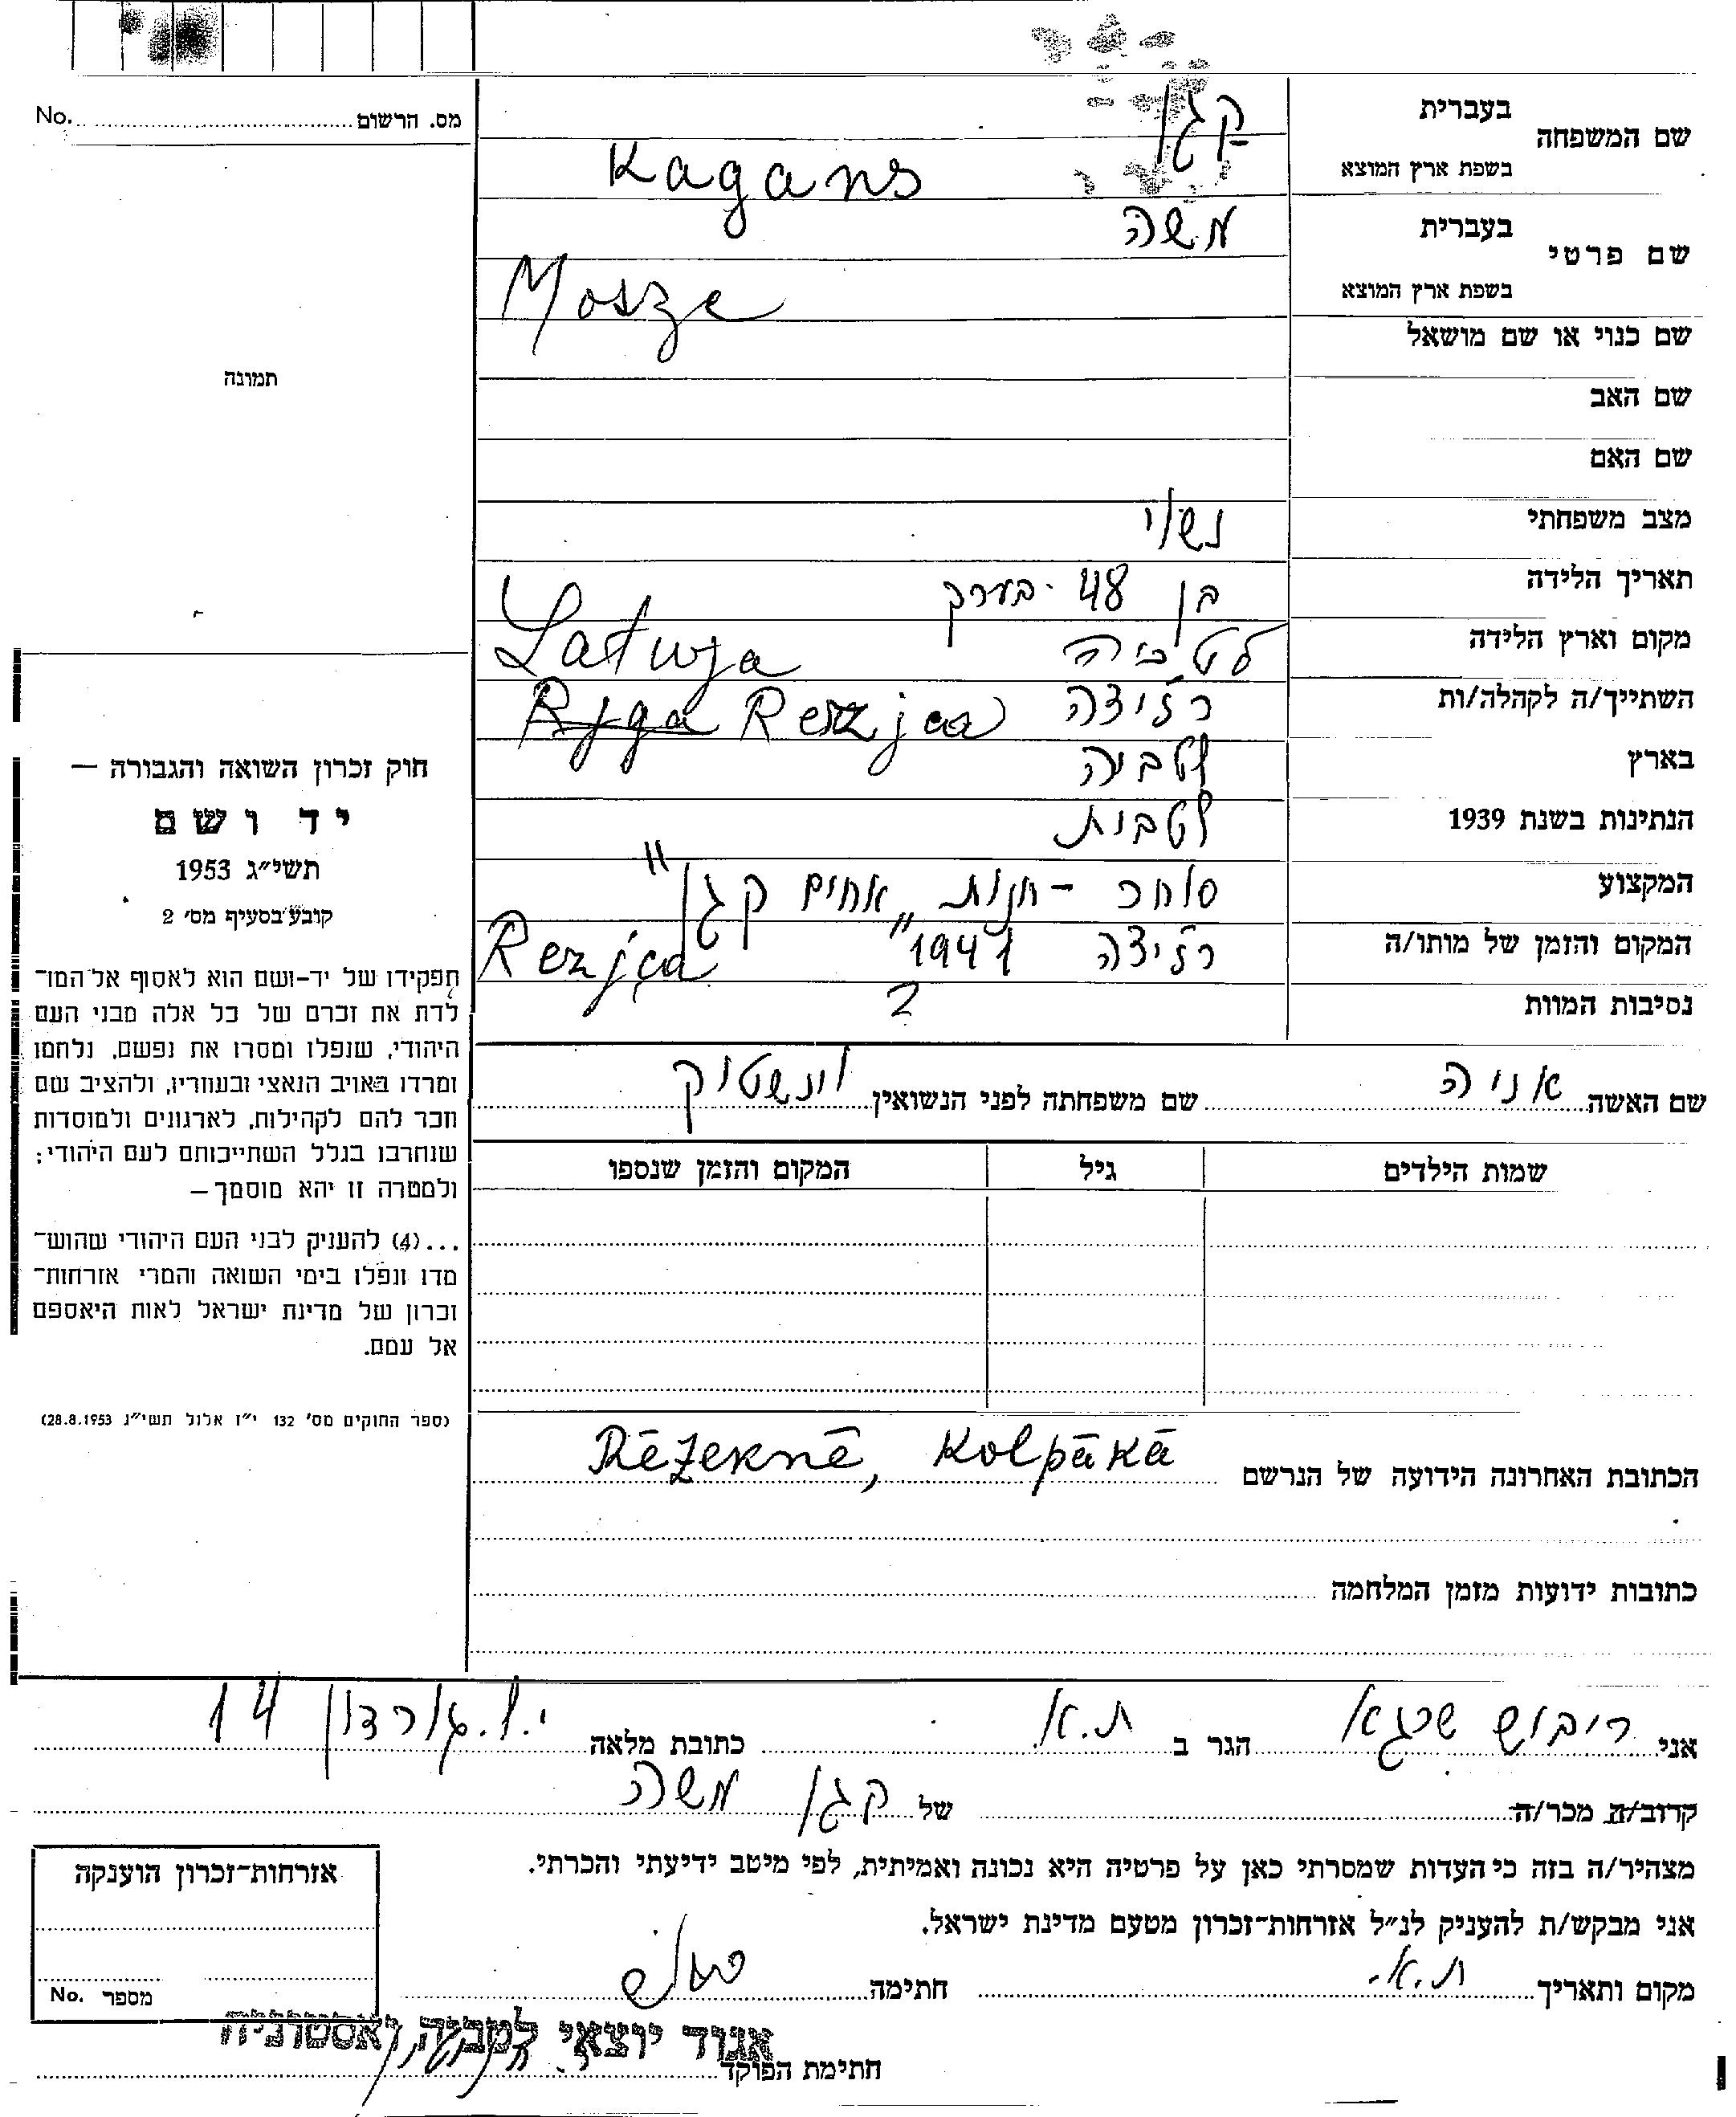 No. מס. הרשום
שם המשפחה
בעברית קגן
בשפת ארץ המוצא Kagans
שם פרטי
בעברית משה
בשפת ארץ המוצא Mosze
שם כנוי או שם מושאל
תמונה
שם האב
שם האם
מצב משפחתי נשוי
תאריך הלידה בן 48 - בערך
מקום וארץ הלידה לטביה Latwja
השתייך/ה לקהלה/ות רזיצה Ryga Rezzjca
בארץ לטביה
הנתינות בשנת 1939 לטבית
המקצוע סוחר - חנות "אחים קגן"
המקום והזמן של מותו/ה רזיצה 1941 Rezjca
נסיבות המוות ?
שם האשה אניה שם משפחתה לפני הנשואין
שמות הילדים גיל המקום והזמן שנספו
הכתובת האחרונה הידועה של הנרשם Rēzeknē, Kolpākā
כתובות ידועות מזמן המלחמה
חוק זכרון השואה והגבורה —
יד ושם
תשי״ג 1953
קובע בסעיף מס׳ 2
תפקידו של יד-ושם הוא לאסוף אל המו־
לדת את זכרם של כל אלה מבני העם
היהודי, שנפלו ומסרו את נפשם, נלחמו
ומרדו באויב הנאצי ובעוזריו, ולהציב שם
וזכר להם לקהילות, לארגונים ולמוסדות
שנחרבו בגלל השתייכותם לעם היהודי;
ולמטרה זו יהא מוסמך —
...(4) להעניק לבני העם היהודי שהוש־
מדו ונפלו בימי השואה והמרי אזרחות־
זכרון של מדינת ישראל לאות היאספם
אל עמם.
(ספר החוקים מס׳ 132 י״ז אלול תשי״ג 28.8.1953)
אני ריבוש שרגא הגר ב ת.א. כתובת מלאה י.ל. גורדון 14
קרוב/ה מכר/ה של קגן משה
מצהיר/ה בזה כי העדות שמסרתי כאן על פרטיה היא נכונה ואמיתית, לפי מיטב ידיעתי והכרתי.
אני מבקש/ת להעניק לנ״ל אזרחות־זכרון מטעם מדינת ישראל.
מקום ותאריך ת.א. חתימה
אזרחות־זכרון הוענקה
No. מספר
אגוד יוצאי לטביה ואסטוניה
חתימת הפוקד